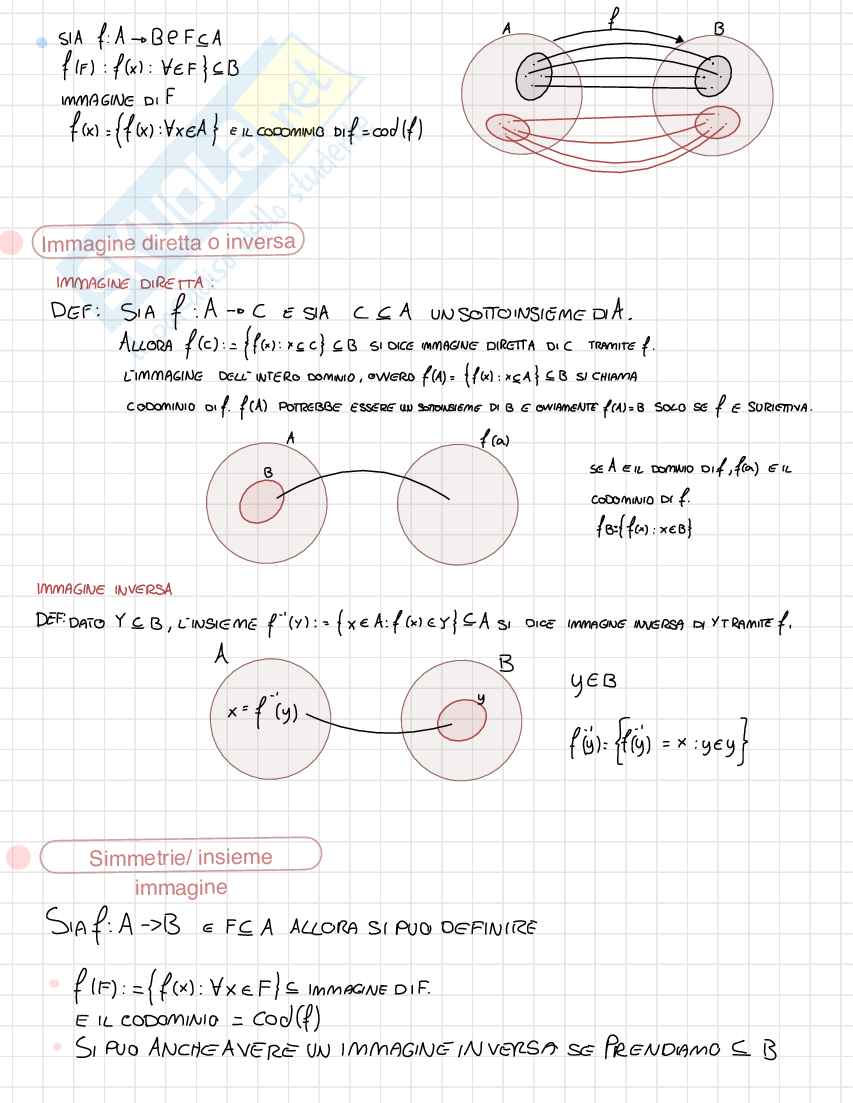 SIA f: A → B e F ⊆ A
f(F) : f(x) : ∀ ∈ F } ⊆ B
IMMAGINE DI F
f(x) = { f(x) : ∀x ∈ A } E IL CODOMINIO DI f = cod(f)
A f B
SKUOLA.net
dello studente
Immagine diretta o inversa
IMMAGINE DIRETTA :
DEF: SIA f : A → C E SIA C ⊆ A UN SOTTOINSIEME DI A.
ALLORA f(C) := { f(x) : x ⊆ C } ⊆ B SI DICE IMMAGINE DIRETTA DI C TRAMITE f.
L'IMMAGINE DELL'INTERO DOMNIO, OVVERO f(A) = { f(x) : x ⊆ A } ⊆ B SI CHIAMA
CODOMINIO DI f. f(A) POTREBBE ESSERE UN SOTTOINSIEME DI B E OVVIAMENTE f(A) = B SOLO SE f E SURIETTIVA.
A f(a)
B
SE A E IL DOMINIO DI f, f(a) E IL
CODOMINIO DI f.
f B = { f(x) : x ∈ B }
IMMAGINE INVERSA
DEF: DATO Y ⊆ B, L'INSIEME f⁻¹(y) := { x ∈ A : f(x) ∈ Y } ⊆ A SI DICE IMMAGINE INVERSA DI Y TRAMITE f.
A B
x = f⁻¹(y) y
y ∈ B
f⁻¹(y) = { f⁻¹(y) = x : y ∈ y }
Simmetrie/ insieme
immagine
SIA f: A -> B E F ⊆ A ALLORA SI PUO DEFINIRE
• f(F) := { f(x) : ∀x ∈ F } ⊆ IMMAGINE DI F.
E IL CODOMINIO = cod(f)
• SI PUO ANCHE AVERE UN IMMAGINE INVERSA SE PRENDIAMO ⊆ B